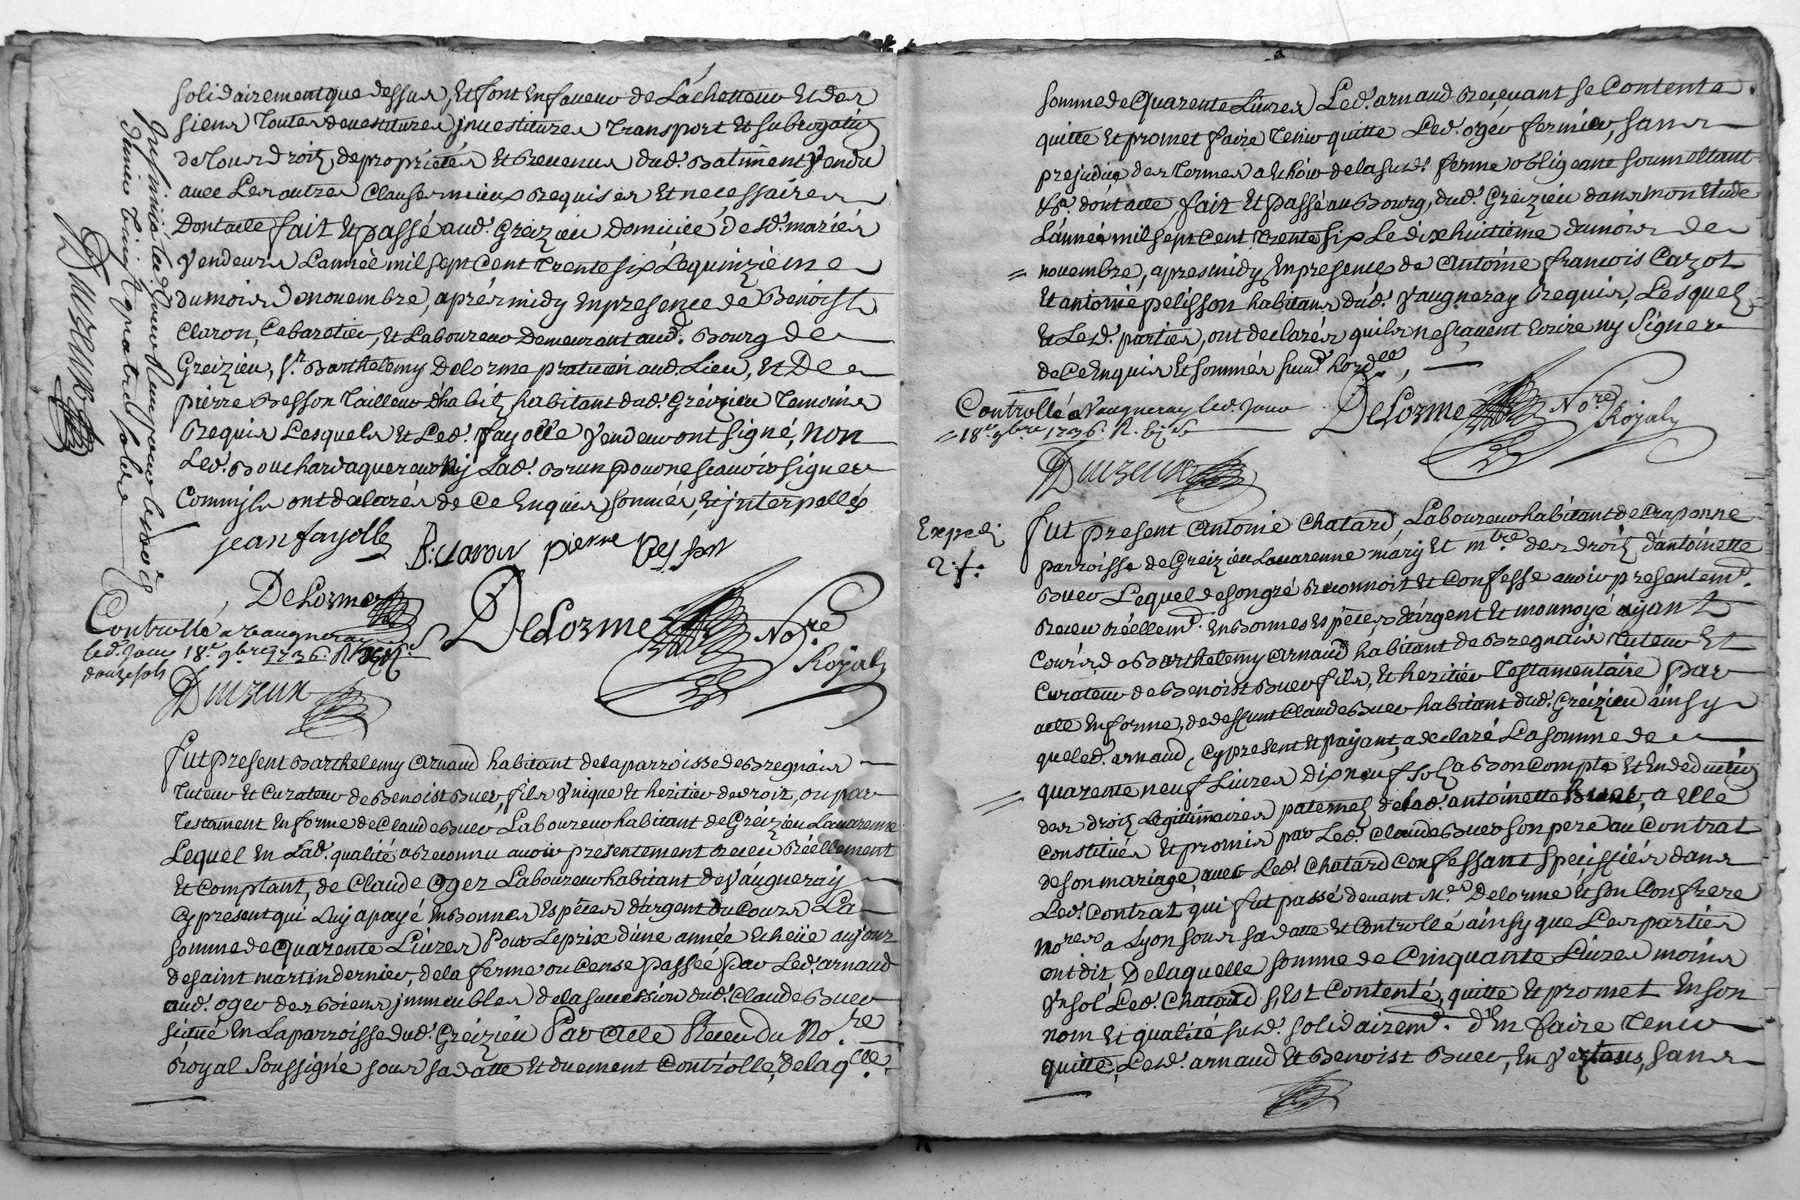 solidairement que dessus, Et font En faveur de L'achetteur Et des
siens Toutes devestitures, investitures Transport Et subrogation
de Tous droits, de propriétés Et Revenus dud. Batiment vendu
avec Les autres Clauses mieux Requises Et necessaires
Dont acte fait Et passé aud. Greizieu Domicile desd. mariés
vendeurs L'année mil sept Cent Trente six Le quinzieme
du mois de novembre, aprés midy En presence de Benoist
Claron, Cabaretier, Et Laboureur demeurant aud. Bourg de
Greizieu, sr. Barthelemy Delorme praticien aud. Lieu, Et De
pierre Besson Tailleur d'habits habitant dud. Greizieu Temoins
Requis Lesquels Et Led. fayolle vendeur ont signé, Non
Led. Bouchard aquereur Ny Lad. Brun pour ne scavoir signer
Comm'ils ont declarés de Ce Enquis sommés, Et interpellés
jean fayolle B: claron pierre besson
Delorme
Delorme No.re
Royal
Controllé a vaugneray
led. Jour 18e. 9bre 1736. R.
douze sols
Duzeux
Duzeux
Fut present Barthelemy Arnaud habitant de la parroisse de Bregnais
Tuteur Et Curateur de Benoist Buer, fils Unique Et heritier de droit, ou par
Testament En forme de Claude Buer Laboureur habitant de Greizieu Lavarenne
Lequel En Lad. qualité a Reconnu avoir presentement Receu Réellement
Et Comptant, de Claude Oger Laboureur habitant de Vaugneray
Cy present qui Luy a payé En Bonnes Espéces d'argent du Cours La
somme de Quarente Livres Pour Le prix d'une année Echeüe au jour
de saint martin dernier, de la ferme ou Cense passée par Led. arnaud
aud. oger des Biens immeubles de la succession dud. Claude Buer
situé En La parroisse dud. Greizieu Par acte Receu du No.re
Royal Soussigné sous sa datte Et duement Controllé, de laq.lle
somme de Quarente Livres Led. arnaud Recevant se Contente
quitte Et promet faire Tenir quitte Led. oger fermier, sans
prejudice des Termes a Echoir de la sud. ferme obligeant soumettant
&a. dont acte, fait Et passé au Bourg, dud. Greizieu dans mon Etude
L'année mil sept Cent Trente six Le dix huitieme du mois de
novembre, apres midy En presence de Antoine francois Cazot
Et antoine pelisson habitans dud. Vaugneray Requis, Lesquels
Et Led. parties, ont declarés qu'ils ne scavent Ecrire ny Signer
de Ce Enquis Et sommés suivt. l'ord.ce
Controllé a Vaugneray led. Jour
18e. 9bre 1736. R.
Duzeux
Delorme No.re
Royal
Exped.
2. f.
Fut present Antoine Chatard, Laboureur habitant de Craponne
parroisse de Greizieu Lavarenne mary Et m.tre des droits d'antoinette
Buer Lequel de son gré Reconnoit Et Confesse avoir presentem.t
Receu Réellem.t En Bonnes Espéces d'argent Et monnoyé ayant
Cours, de Barthelemy Arnaud habitant de Bregnais Tuteur Et
Curateur de Benoist Buer fils, Et heritier Testamentaire par
acte En forme, de deffunt Claude Buer habitant dud. Greizieu ainsy
que led. arnaud, Cy present Et Payant, a declaré La somme de
quarente neuf Livres dix neuf sols a Bon Compte Et En deduction
des droits Legitimaires paternels de lad. antoinette Buer, a Elle
Constitués Et promis par Led. Claude Buer son pere au Contrat
de son mariage, avec Led. Chatard Confessant specifiés dans
Led. Contrat qui fut passé devant M.e Delorme Et son Confrere
No.res a Lyon sous sa datte Et Controllé ainsy que Les parties
ont dit, De laquelle somme de Cinquante Livres moins
Un sol Led. Chatard s'Est Contenté, quitte Et promet En son
nom Et qualité susd. solidairem.t d'En faire Tenir
quitte, Led. arnaud Et Benoist Buer, En Vers tous, sans